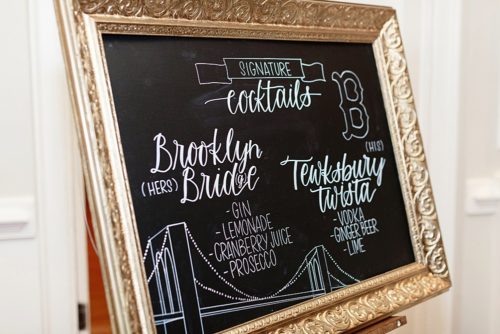 SIGNATURE
cocktails
B
Brooklyn
(HERS) Bride
GIN
- LEMONADE
- CRANBERRY JUICE
- PROSECCO
(HIS)
Tewksbury
twista
- VODKA
- GINGER BEER
- LIME